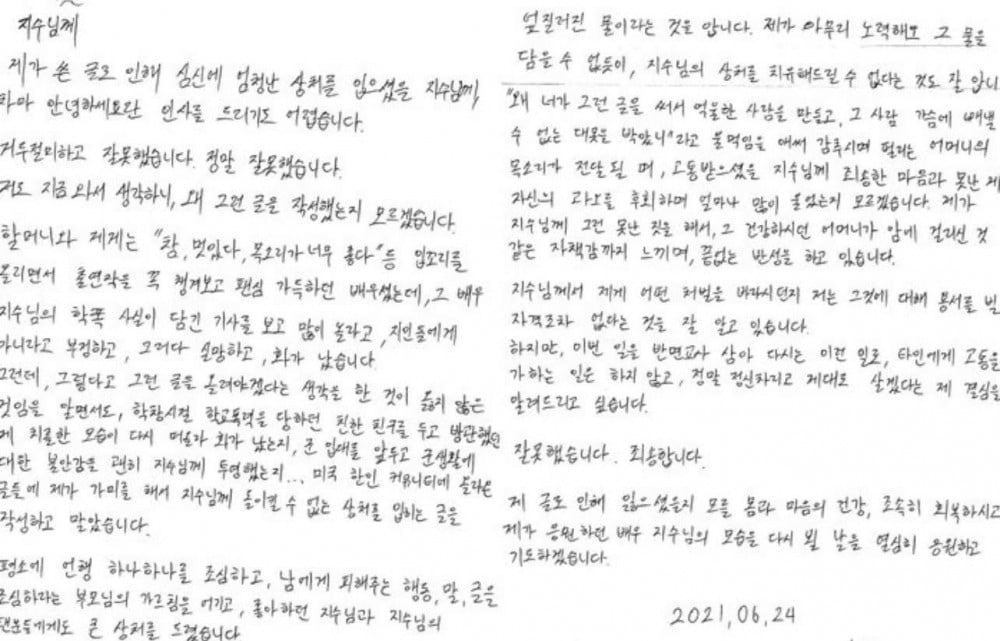 지수님께
제가 쓴 글로 인해 심신에 엄청난 상처를 입으셨을 지수님께,
차마 안녕하세요란 인사를 드리기도 어렵습니다.
거두절미하고 잘못했습니다. 정말 잘못했습니다.
저도 지금 와서 생각하니, 왜 그런 글을 작성했는지 모르겠습니다.
할머니와 제게는 "참, 멋있다, 목소리가 너무 좋다" 등 입소리를
올리면서 출연작을 꼭 챙겨보고 팬심 가득하던 배우셨는데, 그 배우
지수님의 학폭 사실이 담긴 기사를 보고 많이 놀라고, 지인들에게
아니라고 부정하고, 그러다 실망하고, 화가 났습니다.
그런데, 그렇다고 그런 글을 올려야겠다는 생각을 한 것이 옳지 않은
것임을 알면서도, 학창시절 학교폭력을 당하던 친한 친구를 두고 방관했던
제 치졸한 모습이 다시 떠올라 화가 났는지, 군 입대를 앞두고 군생활에
대한 불안감을 괜히 지수님께 투영했는지... 미국 한인 커뮤니티에 올라온
글들에 제가 가미를 해서 지수님께 돌이킬 수 없는 상처를 입히는 글을
작성하고 말았습니다.
평소에 언행 하나하나를 조심하고, 남에게 피해주는 행동, 말, 글을
조심하라는 부모님의 가르침을 어기고, 좋아하던 지수님과 지수님의
팬분들에게도 큰 상처를 드렸습니다
엎질러진 물이라는 것을 압니다. 제가 아무리 노력해도 그 물을
담을 수 없듯이, 지수님의 상처를 치유해드릴 수 없다는 것도 잘 압니
"왜 너가 그런 글을 써서 억울한 사람을 만들고, 그 사람 가슴에 빼낼
수 없는 대못을 박았니"라고 울먹임을 애써 감추시며 떨리는 어머니의
목소리가 전달될 때, 고통받으셨을 지수님께 죄송한 마음과 못난 제
자신의 과오를 후회하며 얼마나 많이 울었는지 모르겠습니다. 제가
지수님께 그런 못난 짓을 해서, 그 건강하시던 어머니가 암에 걸리신 것
같은 자책감까지 느끼며, 끝없는 반성을 하고 있습니다.
지수님께서 제게 어떤 처벌을 바라시던지 저는 그것에 대해 용서를 빌
자격조차 없다는 것을 잘 알고 있습니다.
하지만, 이번 일을 반면교사 삼아 다시는 이런 일로, 타인에게 고통을
가하는 일은 하지 않고, 정말 정신차리고 제대로 살겠다는 제 결심을
알려드리고 싶습니다.
잘못했습니다. 죄송합니다.
제 글로 인해 잃으셨을지 모를 몸과 마음의 건강, 조속히 회복하시고
제가 응원하던 배우 지수님의 모습을 다시 뵐 날을 열심히 응원하고
기도하겠습니다.
2021, 06, 24